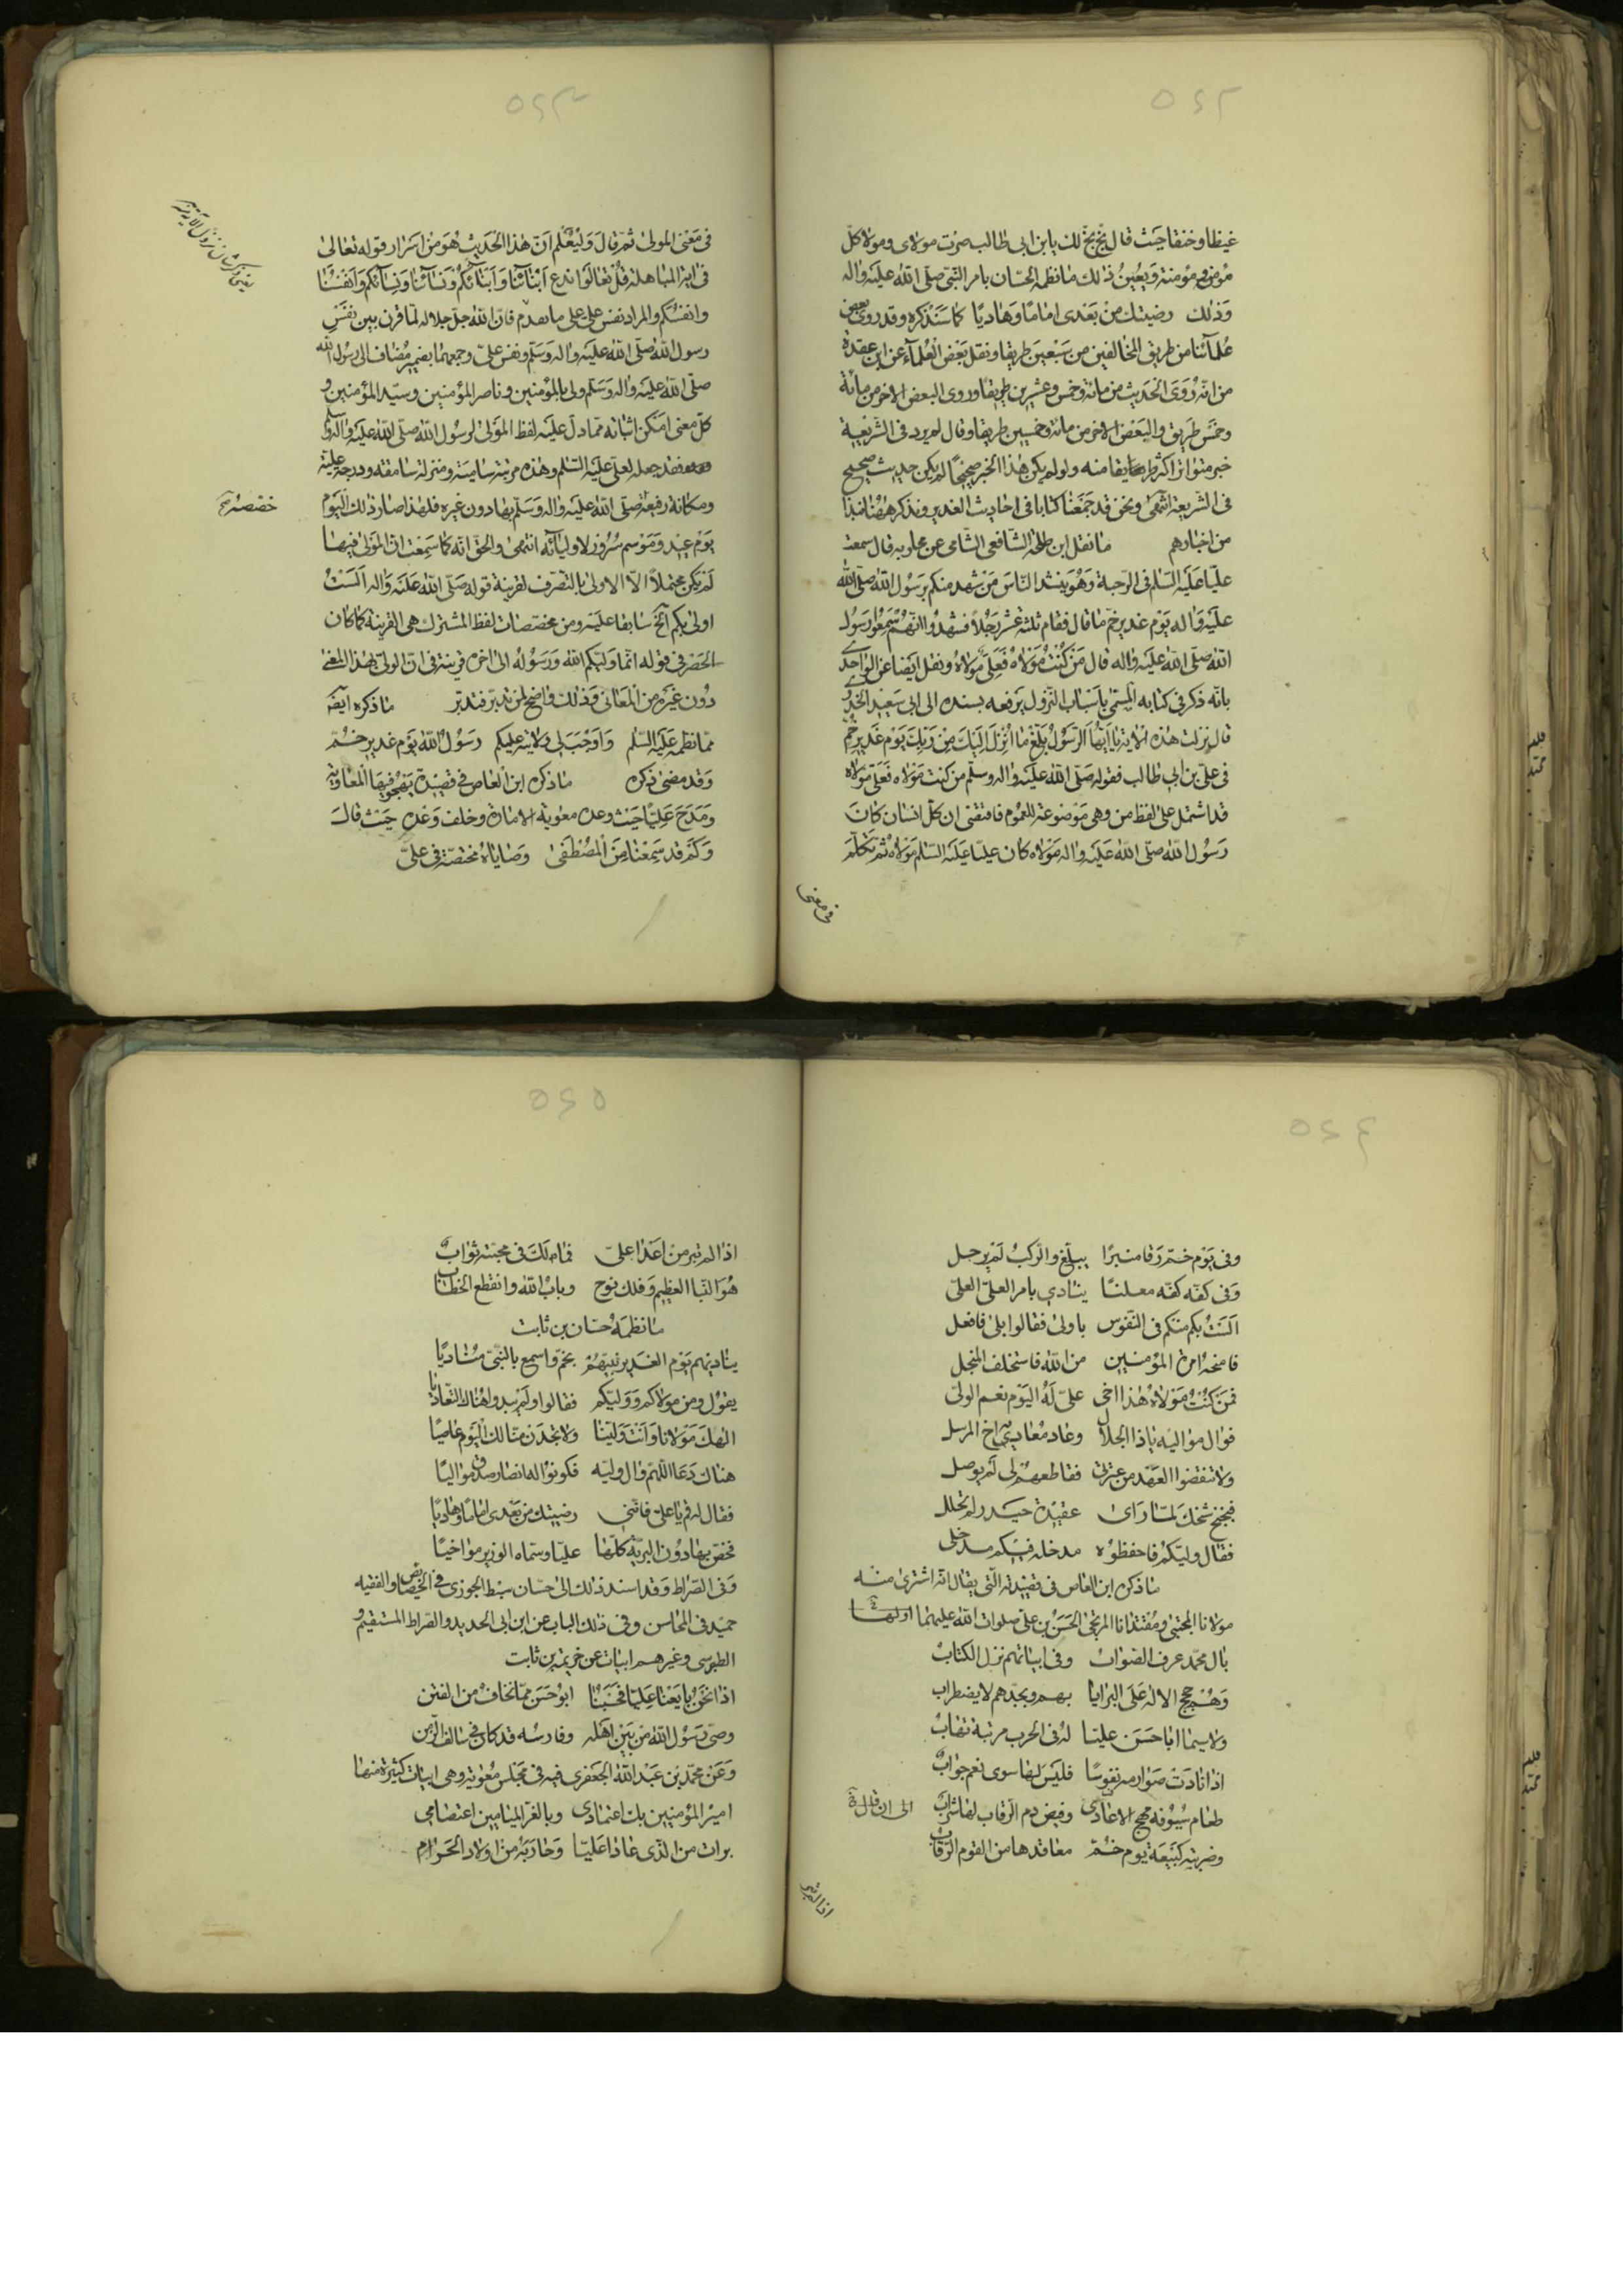 ٥٤٢
غيظا وخنقا حيث قال بخّ بخّ لك يا بن ابى طالب صرت مولاى ومولا كلّ
مؤمن ومؤمنة ويعين ذلك ما نظمه الحسّان بامر النّبى صلّى اللّه عليه واله
وذلك رضيتك من بعدى اماما وهاديا كما سنذكره وقد روى بعض
علمآئنا من طريق المخالفين من سبعين طريقا ونقل بعض العلمآء عن ابن عقدة
من انّه روى الحديث من مائة وخمس وعشرين طريقا وروى البعض الاخر من مائة
وخمس طريق والبعض الاخر من مائة وخمسين طريقا وقال لم يرد فى الشّريعة
خبر متواتر اكثر طريقا منه ولو لم يكن هذا الخبر صحيحا لم يكن حديث صحيح
فى الشريعة انتهى ونحن قد جمعنا كتابا فى احاديث الغدير ونذكر ههنا نبذا
من اخبارهم ما نقل ابن طلحة الشّافعى الشّامى عن قال سمعت
عليّا عليه السّلم فى الرّحبة وهو ينشد النّاس من شهد منكم برسول اللّه صلّى اللّه
عليه واله يوم غدير خم ما قال فقام ثلثة عشر رجلا فشهدوا انّهم سمعوا رسول
اللّه صلّى اللّه عليه واله قال من كنت مولاه فعلىّ مولاه ونقل ايضا عن الواحدى
بانّه ذكر فى كتابه المسمّى باسباب النّزول يرفعه بسنده الى ابى سعيد الخدرى
قال نزلت هذه الاية يا ايّها الرّسول بلّغ ما انزل اليك من ربّك يوم غدير خمّ
فى علىّ بن ابى طالب فقوله صلّى اللّه عليه واله وسلّم من كنت مولاه فعلىّ مولاه
قد اشتمل على لفظ من وهى موضوعة للعموم فاقتضى ان كلّ انسان كان
رسول اللّه صلّى اللّه عليه واله مولاه كان عليّا عليه السّلم مولاه ثمّ تكلّم
فى معنى
٥٤٣
فى معنى المولى ثمّ قال وليعلم انّ هذا الحديث هو من اسرار قوله تعالى
فى اية المباهلة قل تعالوا ندع ابنآئنا وابنآئكم ونسآئنا ونسآئكم وانفسنا
وانفسكم والمراد نفس على على ما تقدم فانّ اللّه جلّ جلاله لمّا قرن بين نفس
رسول اللّه صلّى اللّه عليه واله وسلّم ونفس علىّ وجمعهما بضمير مضاف الى رسول اللّه
صلّى اللّه عليه واله وسلّم ولى بالمؤمنين وناصر المؤمنين وسيّد المؤمنين و
كلّ معنى امكن اثباته ممّا دلّ عليه لفظ المولى لرسول اللّه صلّى اللّه عليه واله وسلّم
فقد جعله لعلى عليه السّلم وهذه مرتبة سامية ومنزلة سامقة ودرجة عليّة
ومكانة رفيعة صلّى اللّه عليه واله وسلّم بها دون غيره فلهذا صار ذلك اليوم
خصّصه
يوم عيد وموسم سرور لاوليآئه انتهى والحقّ انّه كما سمعت انّ المولى فيها
لم يكن محتملا الّا الاولى بالتصرّف لقرينة قوله صلّى اللّه عليه واله الست
اولى بكم الخ سابقا عليه ومن مخصّصات لفظ المشترك هى القرينة كما كان
الحصر فى قوله انّما وليّكم اللّه ورسوله الى اخره قرينة فى انّ الولى بهذا المعنى
دون غيره من المعانى وذلك واضح لمن تدبّر فتدبّر ما ذكره ايضه
ممّا نظمه عليه السّلم واوجب لى ولايته عليكم رسول اللّه يوم غدير خمّ
وقد مضى ذكره ما ذكره ابن العاص فى قصيدة يهجو فيها المعاوية
ومدح عليّا حيث وعده معوية الامارة وخلف وعده حيث قال
وكم قد سمعنا من المصطفى وصاياه مختصّة فى علىّ
٥٤٤
وفى يوم خمّ رقا منبرا يبلّغ والرّكب لم يرحل
وفى كفّه كفّه معلنا ينادى بامر العلىّ العلى
الست بكم منكم فى النّفوس باولى فقالوا بلى فافعل
فامنحه امرة المؤمنين من اللّه فاستخلف المنجل
فمن كنت مولاه هذا اخى علىّ له اليوم نعم الولىّ
فوال مواليه ياذا الجلال وعاد معادى اخ المرسل
ولا تنقضوا العهد من عترتى فقاطعهم لى لم يوصل
فبخبخ شيخك لمّا راى عقيدة حيدر لم تحلل
فقال وليّكم فاحفظوه مدخله فيكم مدخلى
ما ذكره ابن العاص فى قصيدته الّتى يقال انّه اشترى منه
مولانا المجتبى ومقتدانا المرتجى الحسن بن على صلوات اللّه عليهما اولها
بال محمّد عرف الصّواب وفى ابياتهم نزل الكتاب
وهم حجج الاله على البرايا بهم وبجدّهم لا يضطراب
ولا سيّما ابا حسن عليّا له فى الحرب مرتبة تهاب
اذا نادت صوارمه نفوسا فليس لها سوى نعم جواب
طعام سيوفه مهج الاعادى وفيض دم الرّقاب لها شراب الى ان قال
وضربته كبيعة يوم خمّ معاقدها من القوم الرّقاب
اذا لم تبر
٥٤٥
اذا لم تبر من اعدا علىّ فما لك فى محبّته ثواب
هو النّبا العظيم وفلك نوح وباب اللّه وانقطع الخطاب
ما نظمه حسّان بن ثابت
يناديهم يوم الغدير نبيّهم بخمّ واسمع بالنّبىّ مناديا
يقول ومن مولاكم ووليّكم فقالوا ولم يبدوا هناك التّعاديا
الهك مولانا وانت وليّنا ولا تجدن منّا لك اليوم عاصيا
هناك دعا اللّهمّ وال وليّه فكونوا له انصار صدق مواليا
فقال له قم يا علىّ فانّنى رضيتك من بعدى اماما وهاديا
فخصّ بها دون البريّة كلّها عليّا وسمّاه الوزير مواخيا
وفى الصّراط وقد اسند ذلك الى حسّان سبط الجوزى فى الخصايص والفقيه
حميد فى المحاسن وفى ذلك الباب عن ابن ابى الحديد والصّراط المستقيم و
الطبرسى وغيرهم ابيات عن خزيمة بن ثابت
اذا نحن بايعنا عليّا فحسبنا ابو حسن ممّا نخاف من الفتن
وصىّ رسول اللّه من بين اهله وفارسه قد كان فى سالف الزّمن
وعن محمّد بن عبد اللّه الجعفرى فيه فى مجلس معوية وهى ابيات كثيرة منها
امير المؤمنين بك اعتمادى وبالغرّ الميامين اعتصامى
برات من الّذى عادا عليّا وحاربه من اولاد الحرام